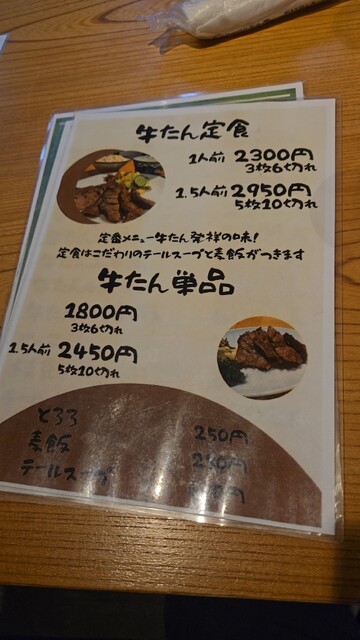 牛たん定食
1人前 2300円
3枚6切れ
1.5人前 2950円
5枚10切れ
定番メニュー牛たん発祥の味!
定食はこだわりのテールスープと麦飯がつきます
牛たん単品
1800円
3枚6切れ
1.5人前 2450円
5枚10切れ
とろろ 250円
麦飯
テールスープ